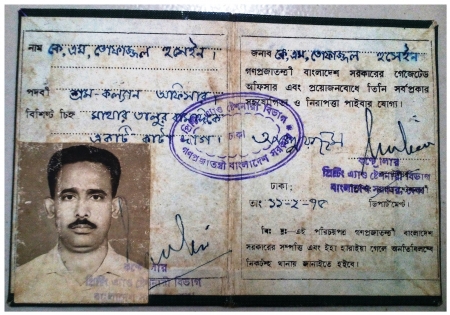 নাম কে, এম, তোফাজ্জল হুসেইন।
পদবী শ্রম-কল্যান অফিসার
বিশিষ্ট চিহ্ন মাথার তালুর
একটি কাটা দাগ।
জনাব কে, এম, তোফাজ্জল হুসেইন।
গণপ্রজাতন্ত্রী বাংলাদেশ সরকারের গেজেটেড
অফিসার এবং প্রয়োজনবোধে তিনি সর্বপ্রকার
সহযোগিতা ও নিরাপত্তা পাইবার যোগ্য।
প্রিন্টিং এ্যাণ্ড ষ্টেশনারী বিভাগ
ঢাকা
গণপ্রজাতন্ত্রী বাংলাদেশ সরকার
কন্ট্রোলার
প্রিন্টিং এ্যাণ্ড ষ্টেশনারী বিভাগ
ঢাকা:
ডিপার্টমেন্ট।
তাং ১১-২-৭৫
বিঃ দ্রঃ—এই পরিচয়পত্র গণপ্রজাতন্ত্রী বাংলাদেশ
সরকারের সম্পত্তি এবং ইহা হারাইয়া গেলে অনতিবিলম্বে
নিকটস্থ থানায় জানাইতে হইবে।
কন্ট্রোলার
প্রিন্টিং এ্যাণ্ড ষ্টেশনারী বিভাগ